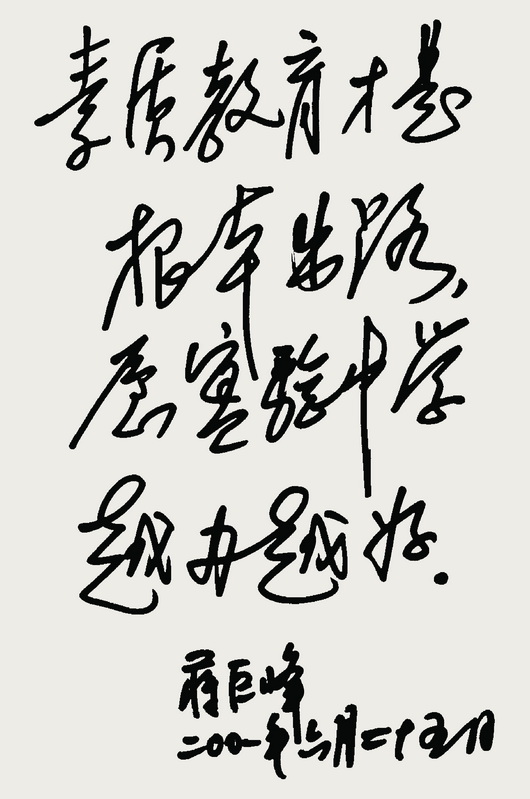 素质教育才是
根本出路,
愿实验中学
越办越好.
蒋巨峰
二00一年六月二十五日